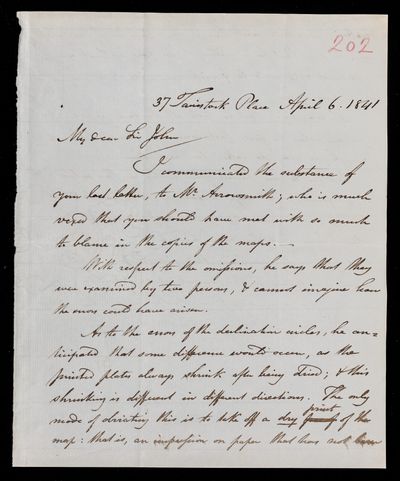 202
37 Tavistock Place April 6. 1841
My dear Sir John
I communicated the substance of
your last letter, to Mr. Arrowsmith; who is much
vexed that you should have met with so much
to blame in the copies of the maps. —
With respect to the omissions, he says that they
were examined by two persons, & cannot imagine how
the errors could have arisen.
As to the errors of the declination circles, he an-
ticipated that some difference would occur, as the
printed plates always shrink after being dried; & this
shrinking is different in different directions. The only
mode of obviating this is to take off a dry print of the
map: that is, an impression on paper that has not been